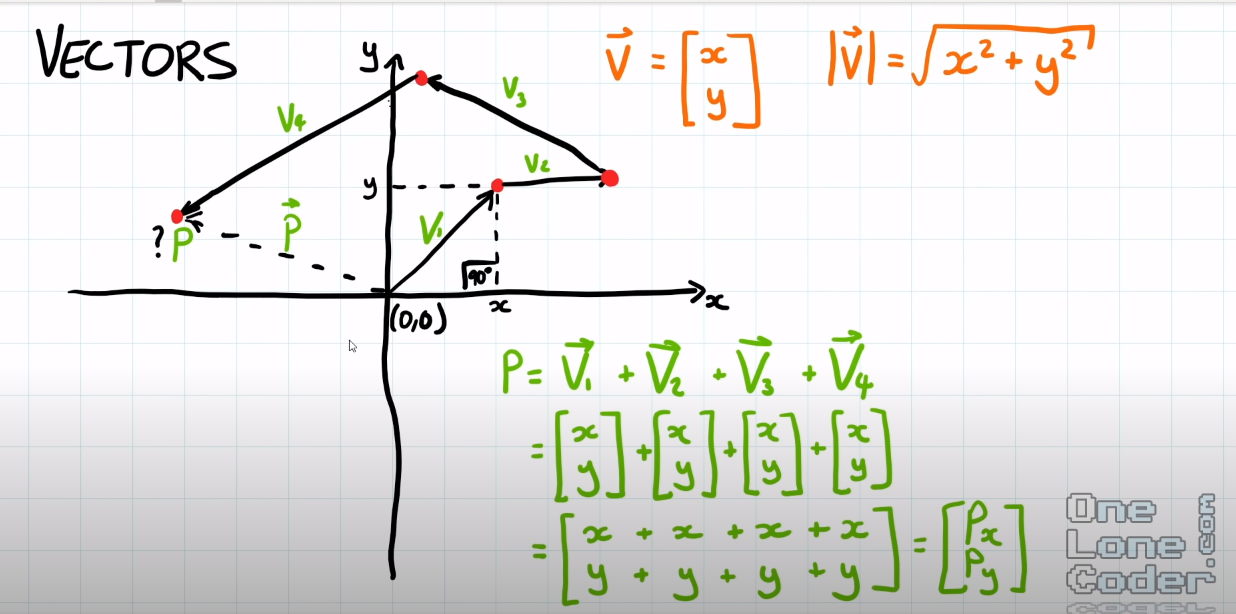 VECTORS
y
V⃗ = [x y]
|V⃗| = √x² + y²
V₃
V₄
V₂
y
P⃗
V₁
? P
90°
x
x
(0,0)
P = V⃗₁ + V⃗₂ + V⃗₃ + V⃗₄
= [x y] + [x y] + [x y] + [x y]
= [x + x + x + x
y + y + y + y] = [Px Py]
One
Lone
Coder.com